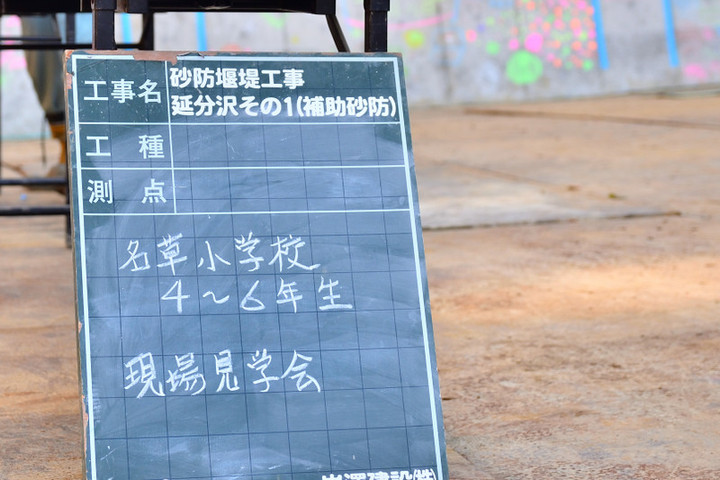 工事名
砂防堰堤工事
延分沢その1(補助砂防)
工種
測点
名草小学校
4～6年生
現場見学会
建設㈱